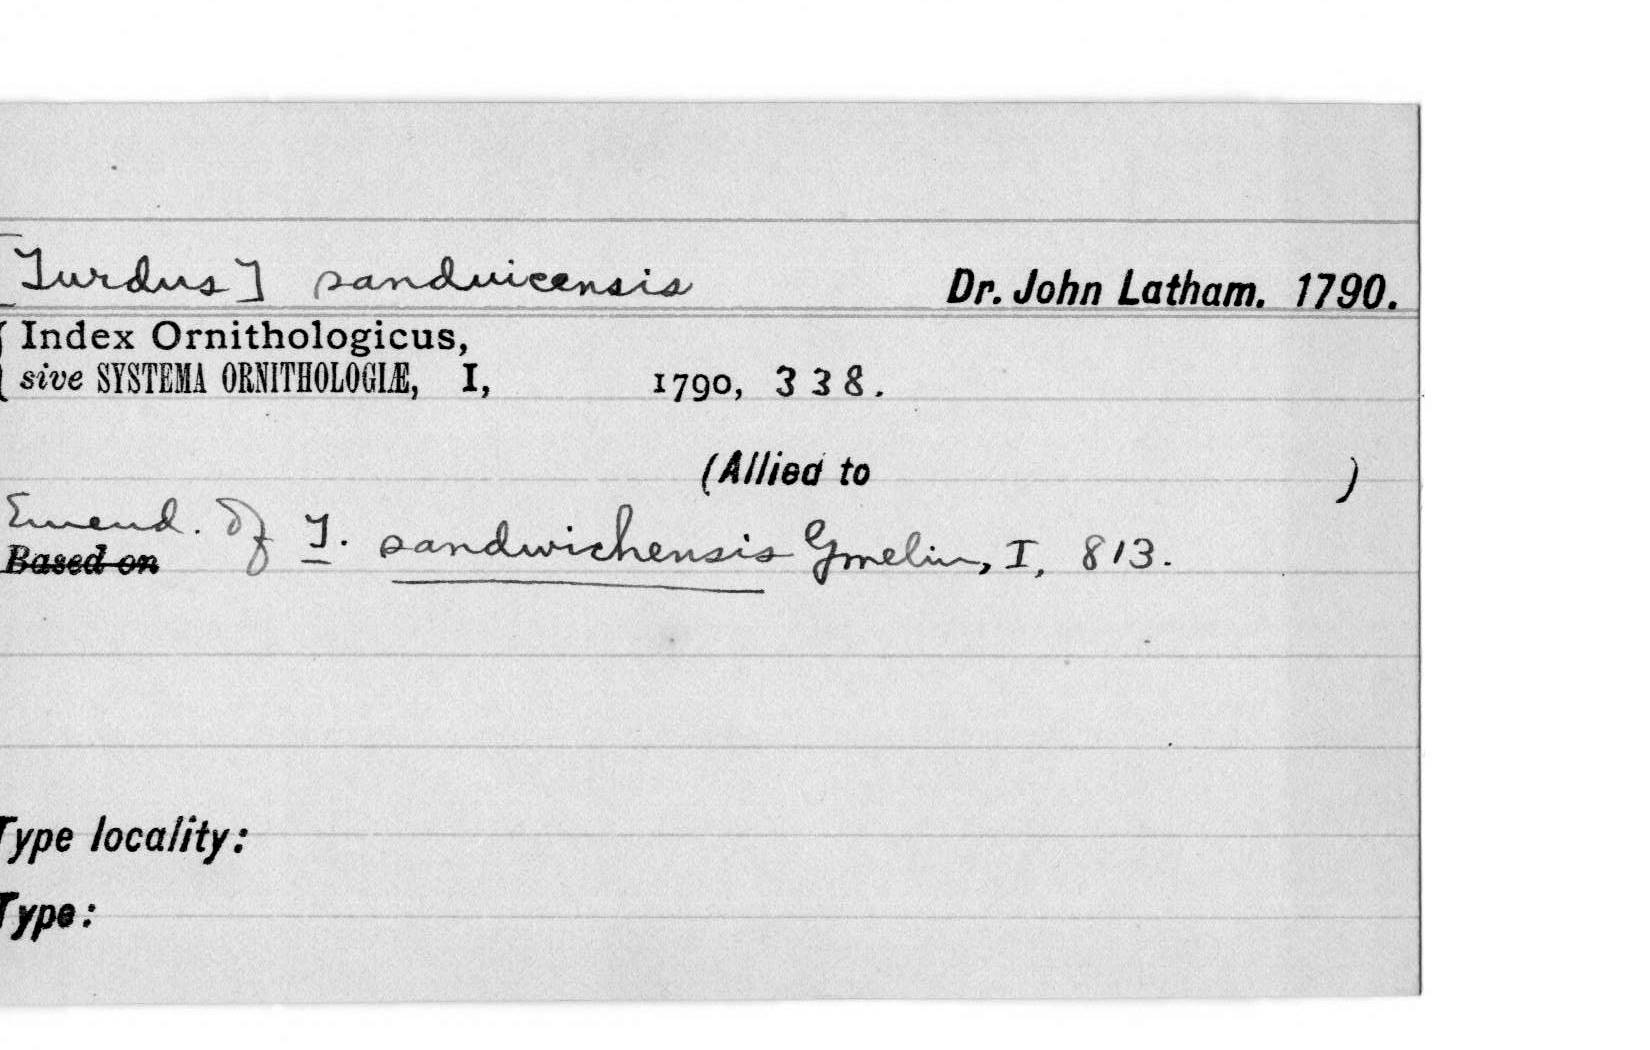 [Turdus] sandvicensis Dr. John Latham. 1790.
Index Ornithologicus,
sive SYSTEMA ORNITHOLOGIÆ, I, 1790, 338.
(Allied to )
Emend. of T. sandwichensis Gmelin, I, 813.
Based on
Type locality:
Type: